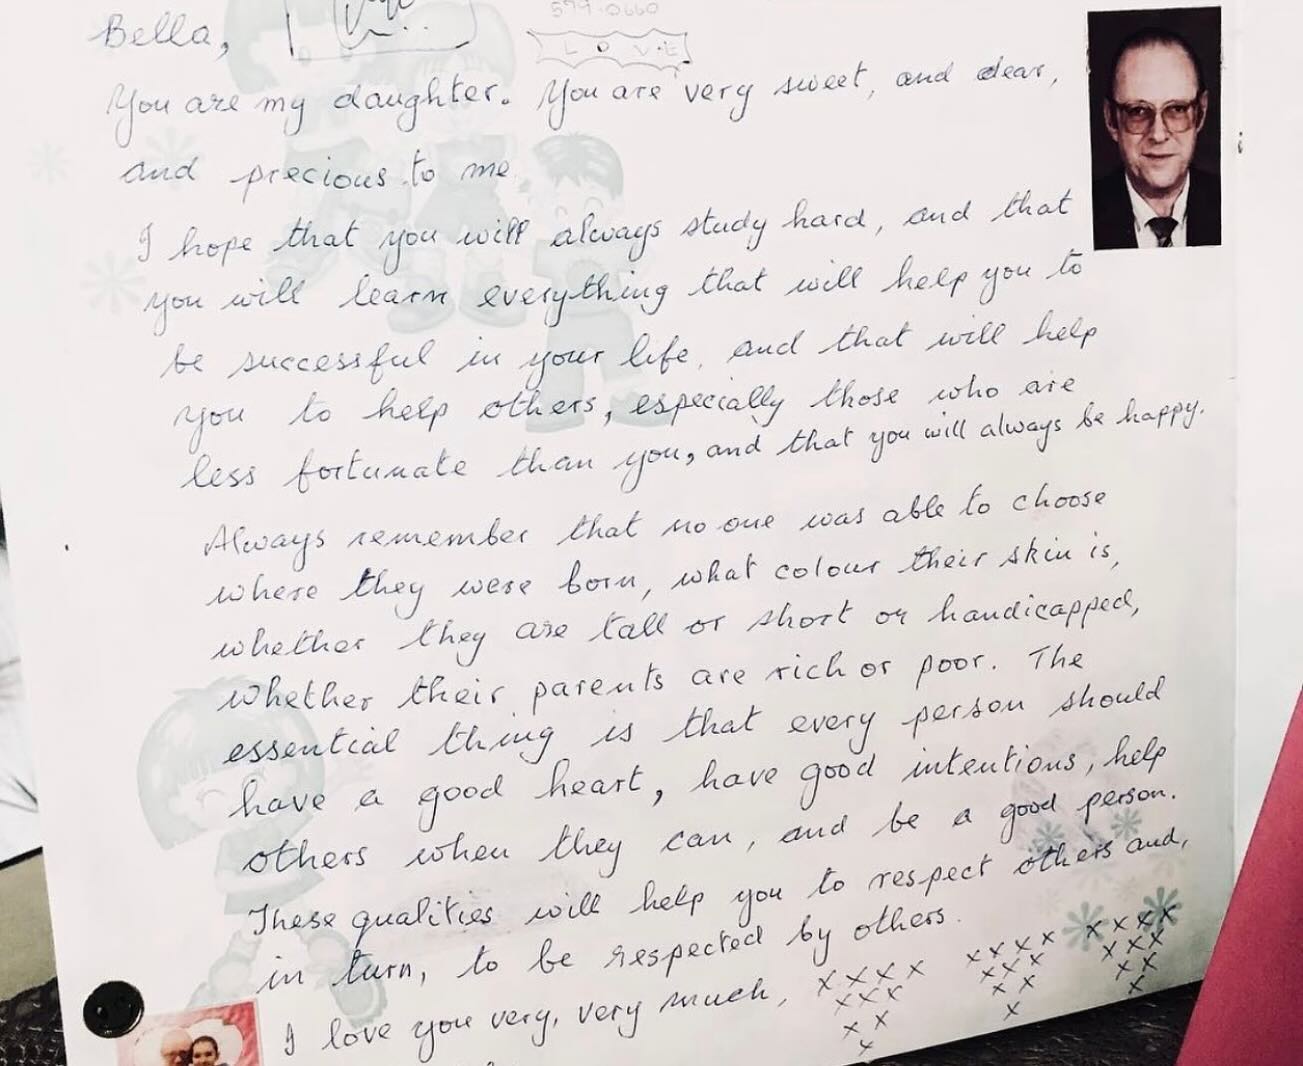 579-0660
Bella,
L O V E
You are my daughter. You are very sweet, and dear,
and precious to me.
I hope that you will always study hard, and that
you will learn everything that will help you to
be successful in your life, and that will help
you to help others, especially those who are
less fortunate than you, and that you will always be happy.
Always remember that no one was able to choose
where they were born, what colour their skin is,
whether they are tall or short or handicapped,
whether their parents are rich or poor. The
essential thing is that every person should
have a good heart, have good intentions, help
others when they can, and be a good person.
These qualities will help you to respect others and,
in turn, to be respected by others.
I love you very, very much, x x x x x x x x x x x x
x x x x x x x x x
x x x x x x
x x x